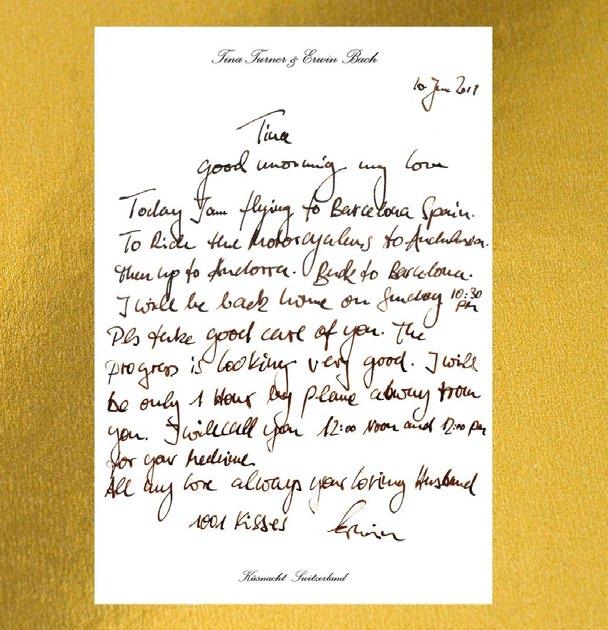 Tina Turner & Erwin Bach
10 June 2017
Tina
Good morning my love
Today I am flying to Barcelona Spain.
To Ride the Motorcycles to Andalusia.
Then up to Andorra. Back to Barcelona.
I will be back home on Sunday 10:30 PM
Pls take good care of you. The
progress is looking very good. I will
be only 1 Hour by plane away from
you. I will call you 12:00 Noon and 12:00 pm
for your Medicine
All my love always your loving Husband
1001 Kisses Erwin
Küsnacht Switzerland